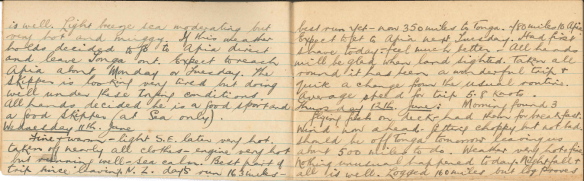 is well. Light breeze sea moderating but
very hot and muggy. If this weather
holds decided to go to Apia direct
and leave Tonga out. Expect to reach
Apia about Monday or Tuesday. The
Skipper is looking very tired but doing
well under these trying conditions.
All hands decided he is a good sport and
a good skipper (at Sea only).
Wednesday 11th. June
Fine warm - light S.E. later very hot.
taken off nearly all clothes - engine very hot
but running well - sea calm. Best part of
trip since leaving N.Z. day's run 163 miles -
best run yet - now 350 miles to Tonga. 780 miles to Apia
Expect to get to Apia next Tuesday. Had first
shave today - feel much better. All hands
will be glad when land sighted. Taken all
round it has been a wonderful trip &
quite a change from the usual routine.
Average speed for trip 5.8 knots.
Thursday 12th. June: Morning found 3
flying fish on deck - had them for breakfast.
Wind now ahead - getting choppy but not bad
should be off Tonga tomorrow leaving us
about 500 miles to do. Weather very hot &
nothing unusual happened to day. Nightfall &
all is well. Logged 160 miles, but